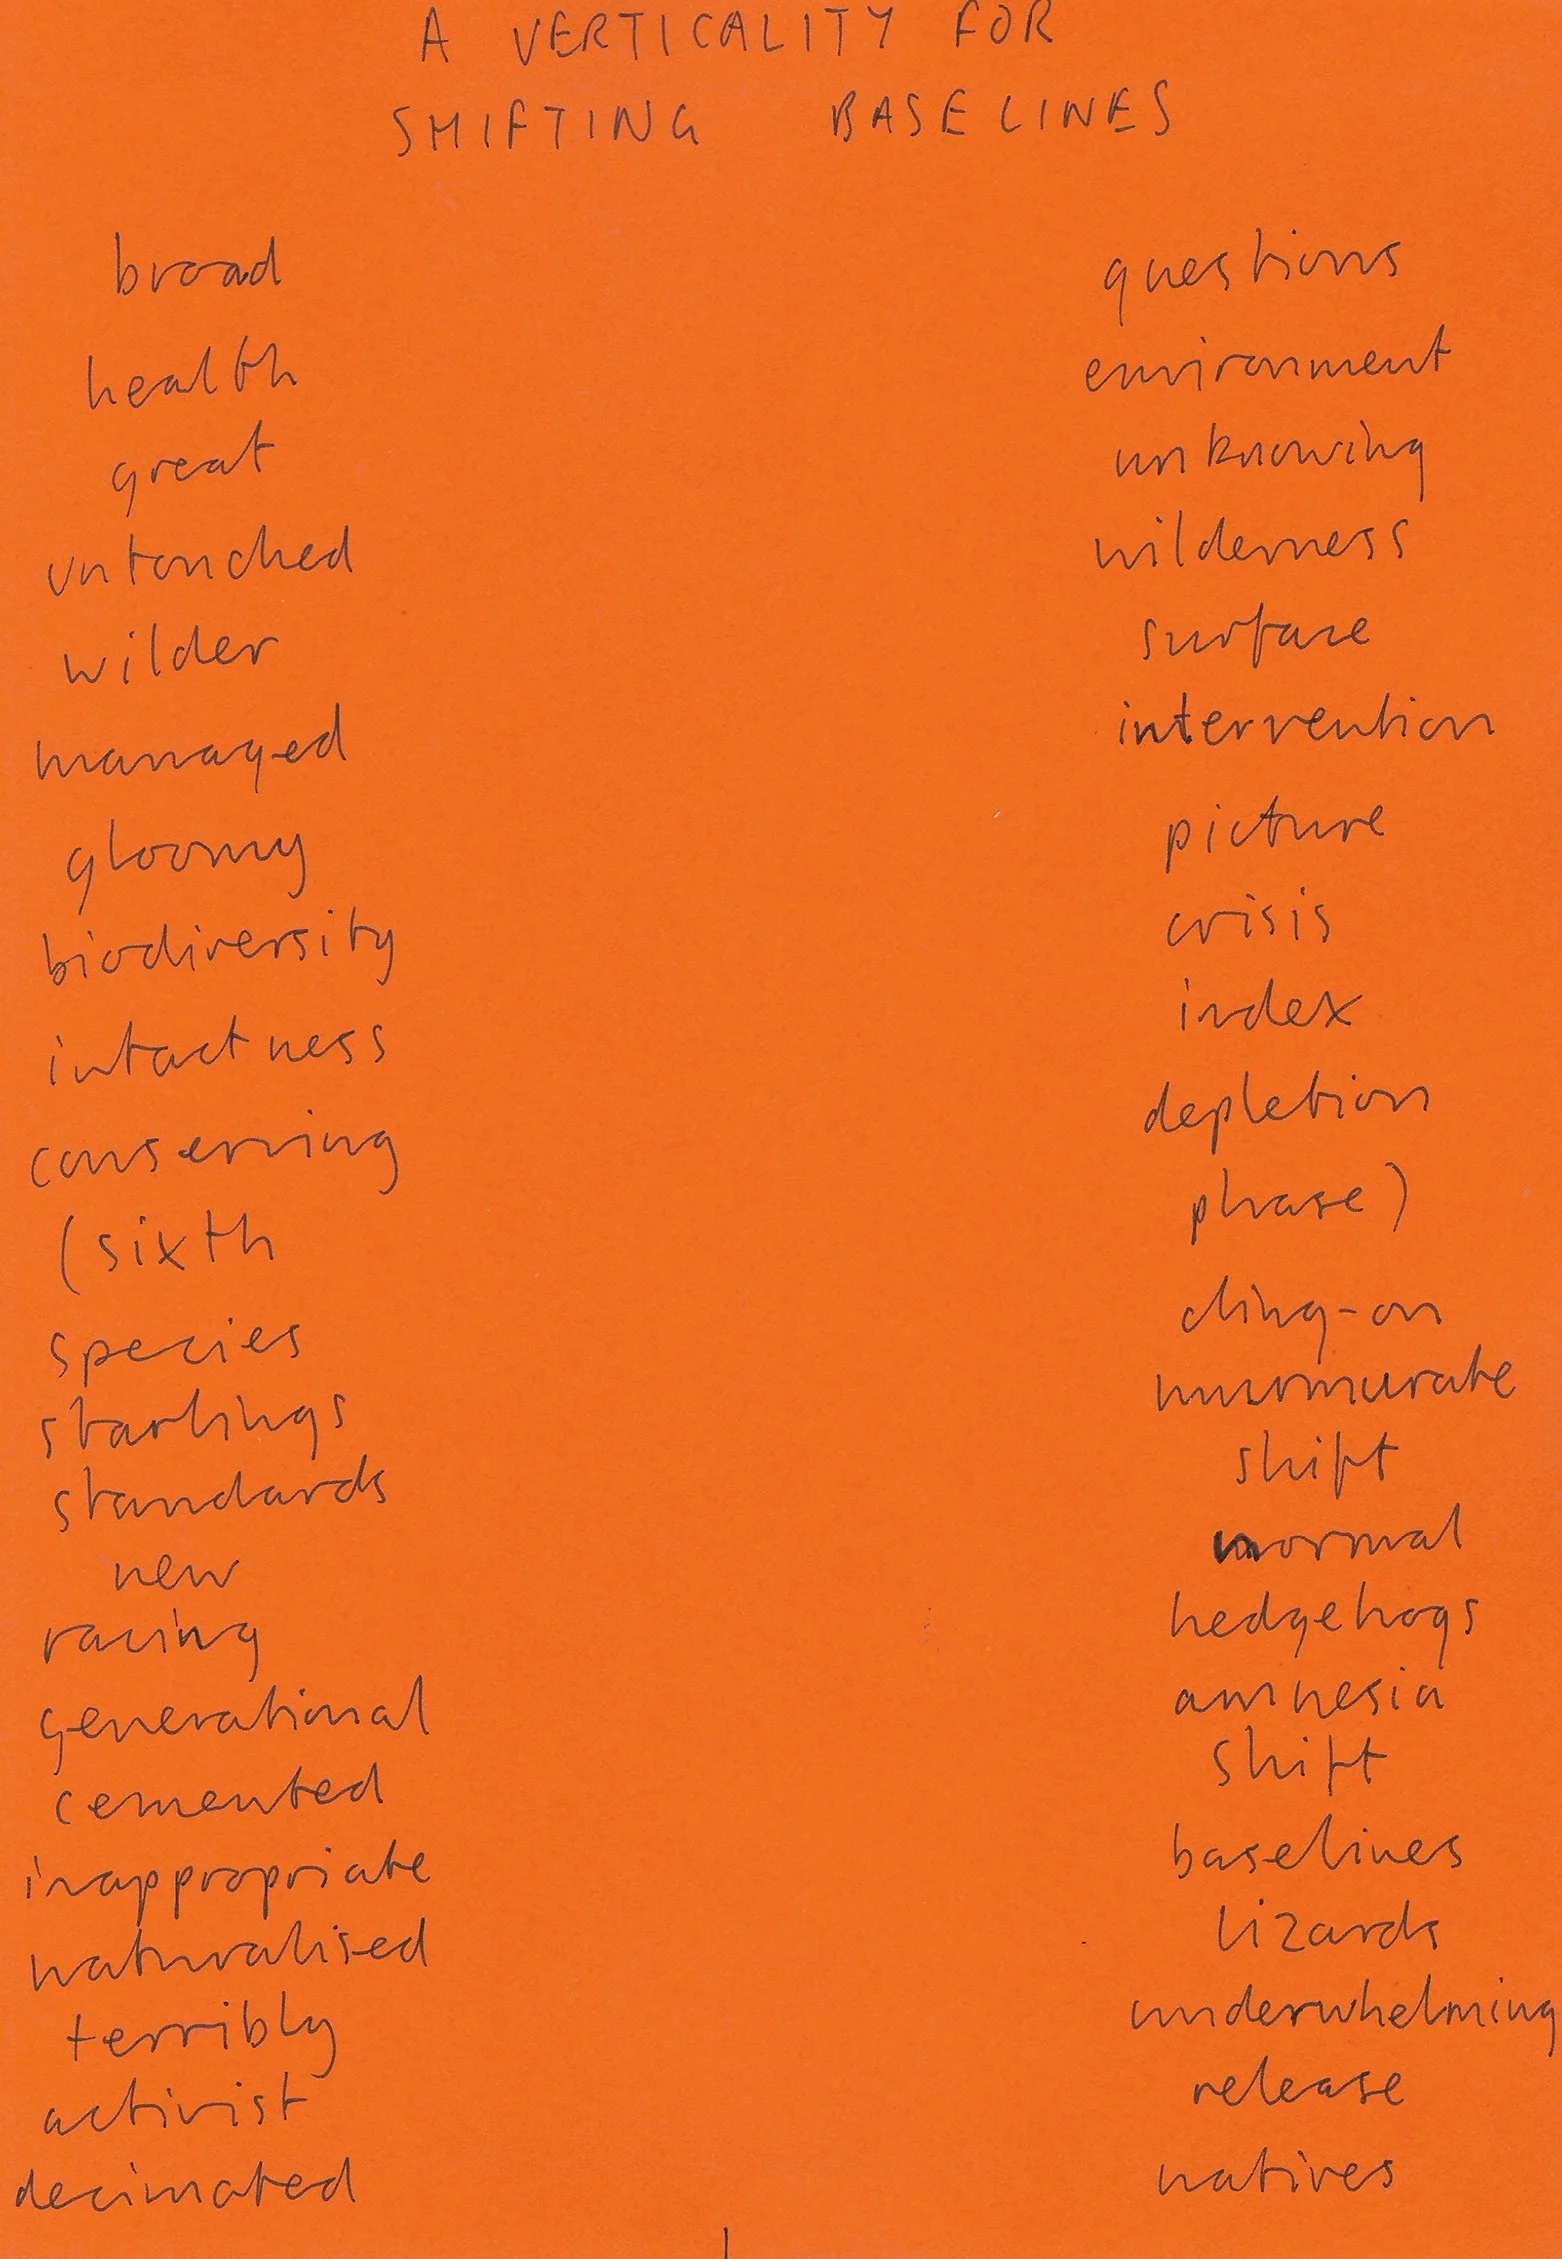 A VERTICALITY FOR
SHIFTING BASELINES
broad questions
health environment
great unknowing
untouched wilderness
wilder surface
managed intervention
gloomy picture
biodiversity crisis
intactness index
conserving depletion
(sixth phase)
species cling-on
starlings murmurate
standards shift
new normal
racing hedgehogs
generational amnesia
cemented shift
inappropriate baselines
naturalised lizards
terribly underwhelming
activist release
decimated natives